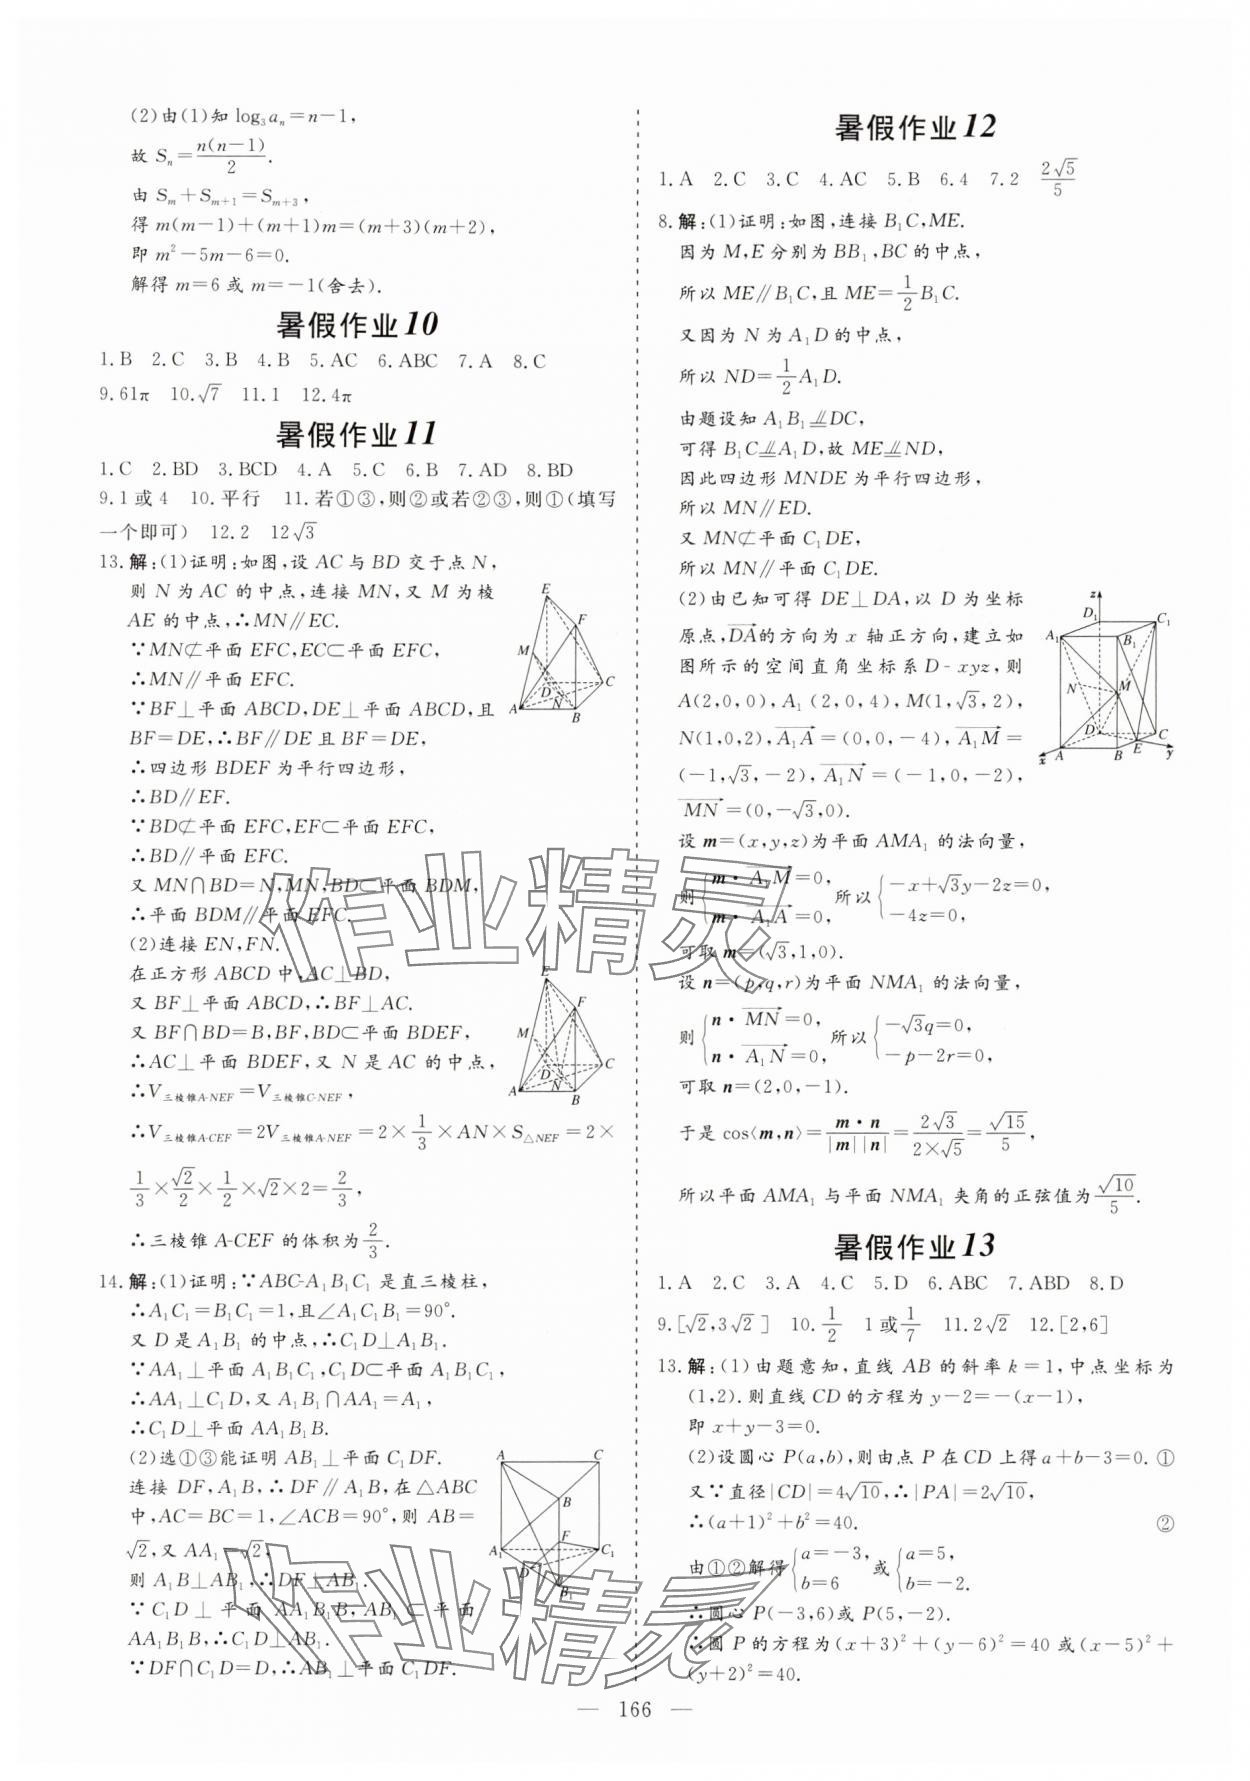 (2)由(1)知 log₃aₙ=n-1,
故 Sₙ=n(n-1)/2.
由 Sₘ+Sₘ₊₁=Sₘ₊₃,
得 m(m-1)+(m+1)m=(m+3)(m+2),
即 m²-5m-6=0.
解得 m=6 或 m=-1(舍去).
暑假作业10
1.B 2.C 3.B 4.B 5.AC 6.ABC 7.A 8.C
9.61π 10.√7 11.1 12.4π
暑假作业11
1.C 2.BD 3.BCD 4.A 5.C 6.B 7.AD 8.BD
9.1 或 4 10.平行 11.若①③,则②或若②③,则①(填写
一个即可) 12.2 12√3
13.解:(1)证明:如图,设 AC 与 BD 交于点 N,
则 N 为 AC 的中点,连接 MN,又 M 为棱
AE 的中点,∴MN∥EC.
∵MN⊄平面 EFC,EC⊂平面 EFC,
∴MN∥平面 EFC.
∵BF⊥平面 ABCD,DE⊥平面 ABCD,且
BF=DE,∴BF∥DE 且 BF=DE,
∴四边形 BDEF 为平行四边形,
∴BD∥EF.
∵BD⊄平面 EFC,EF⊂平面 EFC,
∴BD∥平面 EFC.
又 MN∩BD=N,MN,BD⊂平面 BDM,
∴平面 BDM∥平面 EFC.
(2)连接 EN,FN.
在正方形 ABCD 中,AC⊥BD,
又 BF⊥平面 ABCD,∴BF⊥AC.
又 BF∩BD=B,BF,BD⊂平面 BDEF,
∴AC⊥平面 BDEF,又 N 是 AC 的中点,
∴V三棱锥A-NEF=V三棱锥C-NEF,
∴V三棱锥A-CEF=2V三棱锥A-NEF=2×1/3×AN×S△NEF=2×
1/3×√2/2×1/2×√2×2=2/3,
∴三棱锥 A-CEF 的体积为2/3.
14.解:(1)证明:∵ABC-A₁B₁C₁ 是直三棱柱,
∴A₁C₁=B₁C₁=1,且∠A₁C₁B₁=90°.
又 D 是 A₁B₁ 的中点,∴C₁D⊥A₁B₁.
∵AA₁⊥平面 A₁B₁C₁,C₁D⊂平面 A₁B₁C₁,
∴AA₁⊥C₁D,又 A₁B₁∩AA₁=A₁,
∴C₁D⊥平面 AA₁B₁B.
(2)选①③能证明 AB₁⊥平面 C₁DF.
连接 DF,A₁B,∴DF∥A₁B,在△ABC
中,AC=BC=1,∠ACB=90°,则 AB=
√2,又 AA₁=√2,
则 A₁B⊥AB₁,∴DF⊥AB₁.
∵C₁D⊥平面 AA₁B₁B,AB₁⊂平面
AA₁B₁B,∴C₁D⊥AB₁.
∵DF∩C₁D=D,∴AB₁⊥平面 C₁DF.
暑假作业12
1.A 2.C 3.C 4.AC 5.B 6.4 7.2 2√5/5
8.解:(1)证明:如图,连接 B₁C,ME.
因为 M,E 分别为 BB₁,BC 的中点,
所以 ME∥B₁C,且 ME=1/2B₁C.
又因为 N 为 A₁D 的中点,
所以 ND=1/2A₁D.
由题设知 A₁B₁⫽DC,
可得 B₁C⫽A₁D,故 ME⫽ND,
因此四边形 MNDE 为平行四边形,
所以 MN∥ED.
又 MN⊄平面 C₁DE,
所以 MN∥平面 C₁DE.
(2)由已知可得 DE⊥DA,以 D 为坐标
原点,DA的方向为 x 轴正方向,建立如
图所示的空间直角坐标系 D-xyz,则
A(2,0,0),A₁(2,0,4),M(1,√3,2),
N(1,0,2),A₁A=(0,0,-4),A₁M=
(-1,√3,-2),A₁N=(-1,0,-2),
MN=(0,-√3,0).
设 m=(x,y,z)为平面 AMA₁ 的法向量,
则{m·A₁M=0, m·A₁A=0, 所以{-x+√3y-2z=0, -4z=0,
可取 m=(√3,1,0).
设 n=(p,q,r)为平面 NMA₁ 的法向量,
则{n·MN=0, n·A₁N=0, 所以{-√3q=0, -p-2r=0,
可取 n=(2,0,-1).
于是 cos⟨m,n⟩=m·n/|m||n|=2√3/2×√5=√15/5,
所以平面 AMA₁ 与平面 NMA₁ 夹角的正弦值为√10/5.
暑假作业13
1.A 2.C 3.A 4.C 5.D 6.ABC 7.ABD 8.D
9.[√2,3√2] 10.1/2 1或1/7 11.2√2 12.[2,6]
13.解:(1)由题意知,直线 AB 的斜率 k=1,中点坐标为
(1,2).则直线 CD 的方程为 y-2=-(x-1),
即 x+y-3=0.
(2)设圆心 P(a,b),则由点 P 在 CD 上得 a+b-3=0. ①
又∵直径|CD|=4√10,∴|PA|=2√10,
∴(a+1)²+b²=40. ②
由①②解得{a=-3, b=6 或{a=5, b=-2.
∴圆心 P(-3,6)或 P(5,-2).
∴圆 P 的方程为(x+3)²+(y-6)²=40 或(x-5)²+
(y+2)²=40.
E
F
M
D
N
C
A
B
E
F
M
D
N
C
A
B
A
C
B
F
A₁
C₁
D
B₁
z
D₁
C₁
A₁
B₁
N
M
D
C
A
B
E
x
y
作业精灵
作业精灵
— 166 —